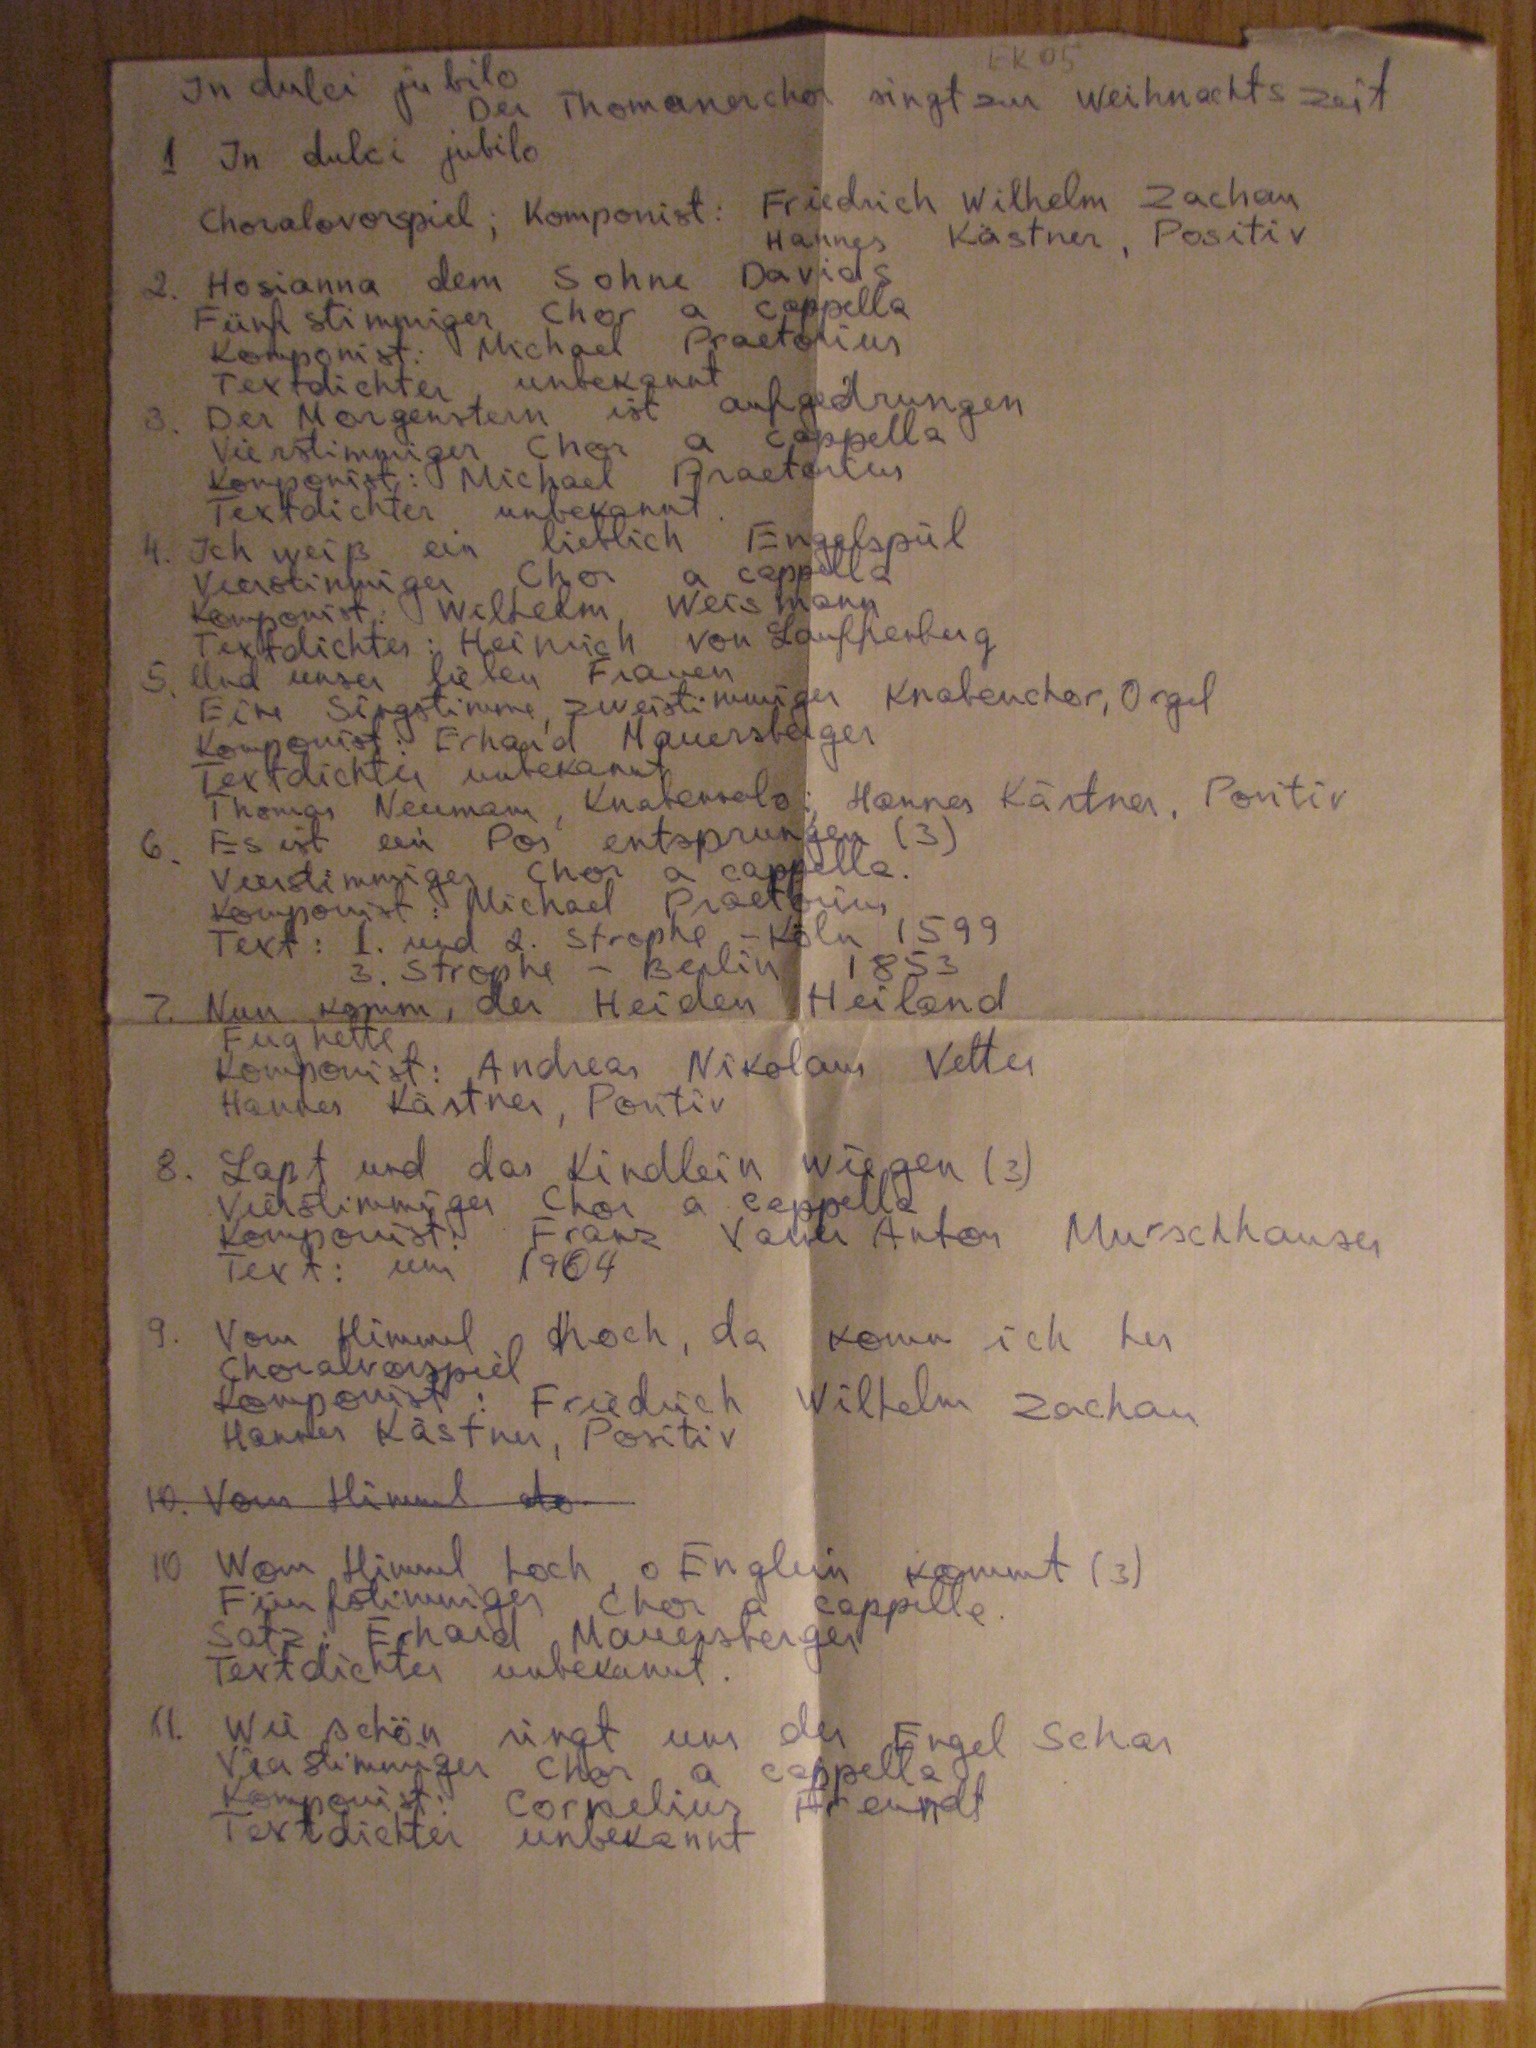 EK05
In dulci jubilo
Der Thomanerchor singt zur Weihnachtszeit
1 In dulci jubilo
Choralovorspiel; Komponist: Friedrich Wilhelm Zachau
Hannes Kästner, Positiv
2. Hosianna dem Sohne Davids
Fünfstimmiger Chor a cappella
Komponist: Michael Praetorius
Textdichter unbekannt
3. Der Morgenstern ist aufgedrungen
Vierstimmiger Chor a cappella
Komponist: Michael Praetorius
Textdichter unbekannt.
4. Ich weiß ein lieblich Engelspiel
Vierstimmiger Chor a cappella
Komponist: Wilhelm Weismann
Textdichter: Heinrich von Lauffenberg
5. Und unser lieben Frauen
Eine Singstimme, zweistimmiger Knabenchor, Orgel
Komponist: Erhard Mauersberger
Textdichter unbekannt
Thomas Neumann, Knabensolo; Hannes Kästner, Positiv
6. Es ist ein Ros entsprungen (3)
Vierstimmiger Chor a cappella.
Komponist: Michael Praetorius
Text: 1. und 2. Strophe - Köln 1599
3. Strophe - Berlin 1853
7. Nun komm, der Heiden Heiland
Fughette
Komponist: Andreas Nikolaus Vetter
Hannes Kästner, Positiv
8. Laßt und das Kindlein wiegen (3)
Vierstimmiger Chor a cappella
Komponist: Franz Xaver Anton Murschhauser
Text: um 1604
9. Vom Himmel hoch, da komm ich her
Choralvorspiel
Komponist: Friedrich Wilhelm Zachau
Hannes Kästner, Positiv
10. Vom Himmel
10 Vom Himmel hoch, o Englein kommt (3)
Fünfstimmiger Chor a cappella.
Satz: Erhard Mauersberger
Textdichter unbekannt.
11. Wie schön singt uns der Engel Schar
Vierstimmiger Chor a cappella
Komponist: Cornelius Freundt
Textdichter unbekannt